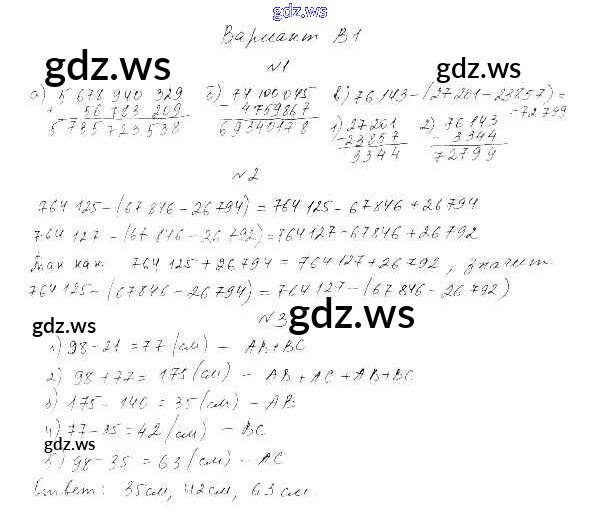 gdz.ws
Вариант В1
№1
а) 5 678 940 329 + 56 783 209 = 5 735 723 538
б) 74 100 045 - 4 759 867 = 69 340 178
в) 76 143 - (27 201 - 23 857) = 72 799
1) 27 201 - 23 857 = 3344
2) 76 143 - 3344 = 72799
№2
764 125 - (67 846 - 26 794) = 764 125 - 67 846 + 26 794
764 127 - (67 846 - 26 792) = 764 127 - 67 846 + 26 792
Так как 764 125 + 26 794 = 764 127 + 26 792, значит
764 125 - (67 846 - 26 794) = 764 127 - (67 846 - 26 792)
№3
1) 98 - 21 = 77 (см) - АВ + ВС
2) 98 + 77 = 175 (см) - АВ + АС + АВ + ВС
3) 175 - 140 = 35 (см) - АВ
4) 77 - 35 = 42 (см) - ВС
5) 98 - 35 = 63 (см) - АС
Ответ: 35 см, 42 см, 63 см.
gdz.ws
gdz.ws
gdz.ws
gdz.ws
gdz.ws
gdz.ws